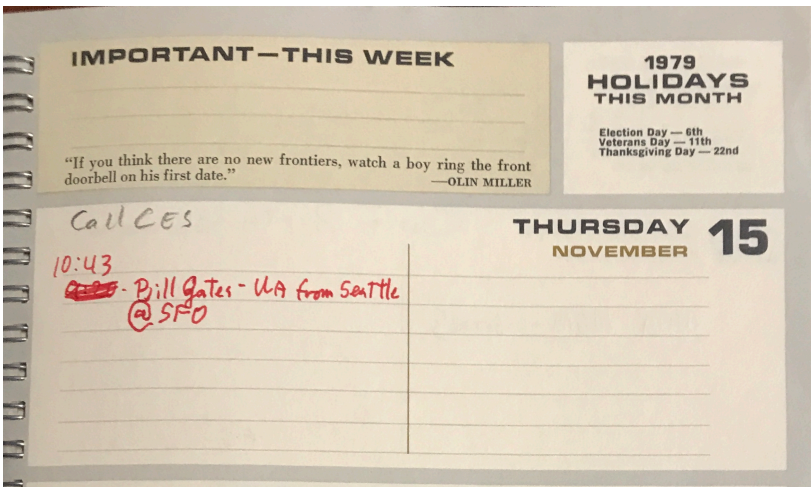 IMPORTANT—THIS WEEK
"If you think there are no new frontiers, watch a boy ring the front
doorbell on his first date."
—OLIN MILLER
1979
HOLIDAYS
THIS MONTH
Election Day — 6th
Veterans Day — 11th
Thanksgiving Day — 22nd
Call CES
THURSDAY 15
NOVEMBER
10:43
- Bill Gates - UA from Seattle
@ SFO